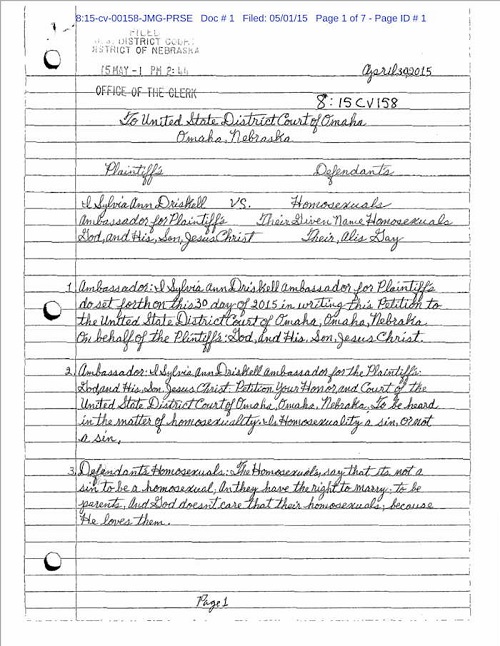 8:15-cv-00158-JMG-PRSE Doc # 1 Filed: 05/01/15 Page 1 of 7 - Page ID # 1
FILED
DISTRICT COURT
DISTRICT OF NEBRASKA
15 MAY -1 PM 2:44
April 30, 2015
OFFICE OF THE CLERK
8:15CV158
To United State District Court of Omaha
Omaha, Nebraska
Plaintiffs Defendants
I Sylvia Ann Driskell VS. Homosexuals
Ambassador for Plaintiffs Their Given Name Homosexuals
God, and His, Son, Jesus Christ Their, Alis Gay
1. Ambassador: I Sylvia Ann Driskell ambassador for Plaintiffs
do set forth on this 30 day of 2015 in writing this Petition to
the United State District Court of Omaha, Omaha, Nebraska.
On behalf of the Plintiffs: God, and His, Son, Jesus Christ.
2. Ambassador: I Sylvia Ann Driskell ambassador for the Plaintiffs:
God, and His, Son, Jesus Christ. Petition Your Honor, and Court of the
United State District Court of Omaha, Omaha, Nebraka. To be heard
in the matter of homosexuality. Is Homosexuality a sin, or not
a sin.
3. Defendants Homosexuals: The Homosexuals, say that its not a
sin to be a homosexual, An they have the right to marry; to be
parents, And God doesn't care that their homosexuals; because
He loves them.
Page 1